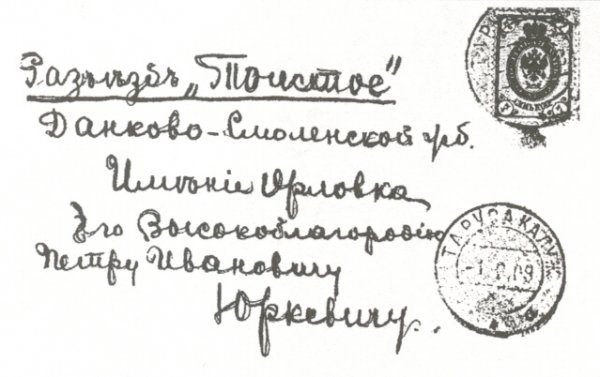 Разъѣздъ „Толстое"
Данково-Смоленской ж.д.
Имѣніе Орловка
Его Высокоблагородію
Петру Ивановичу
Юркевичу.
ТАРУСА КАЛУЖ